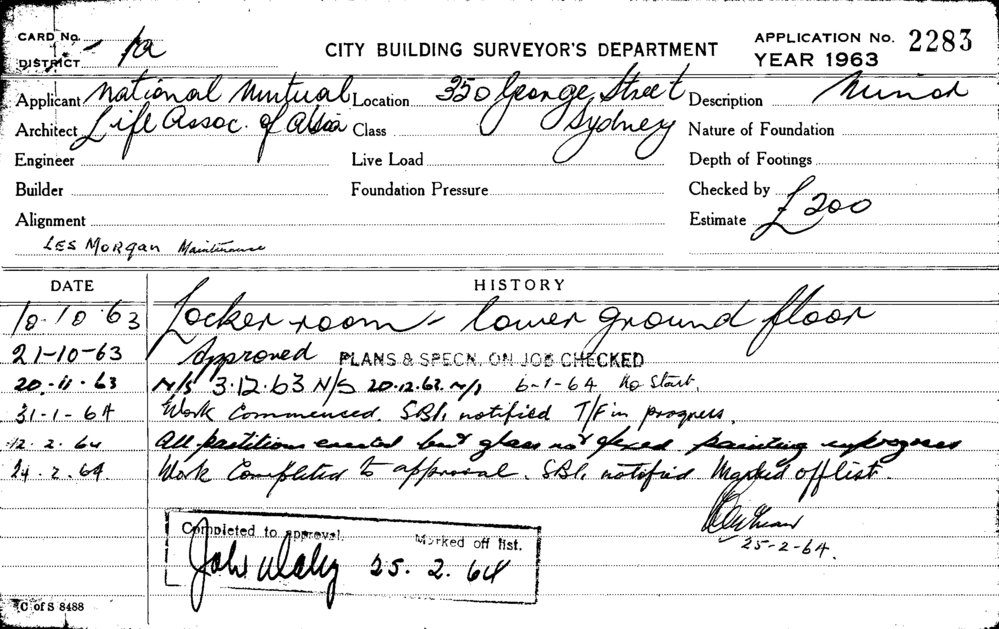 CARD No.
DISTRICT 1a
CITY BUILDING SURVEYOR'S DEPARTMENT
APPLICATION No. 2283
YEAR 1963
Applicant National Mutual Location 350 George Street Description Minor
Architect Life Assoc. of Asia Class Sydney Nature of Foundation
Engineer Live Load Depth of Footings
Builder Foundation Pressure Checked by
Alignment Estimate £200
LES MORGAN Maintenance
DATE HISTORY
10-10-63 Locker room - lower ground floor
21-10-63 Approved PLANS & SPECN. ON JOB CHECKED
20.11.63 N/S 3.12.63 N/S 20.12.63. N/S 6-1-64 No Start.
31-1-64 Work Commenced. SBI. notified T/F in progress.
12.2.64 All partitions erected but glass not fixed painting in progress
24.2.64. Work Completed to approval. SBI. notified Marked off list.
25-2-64.
Completed to approval. Marked off list.
John 25.2.64
C of S 8488